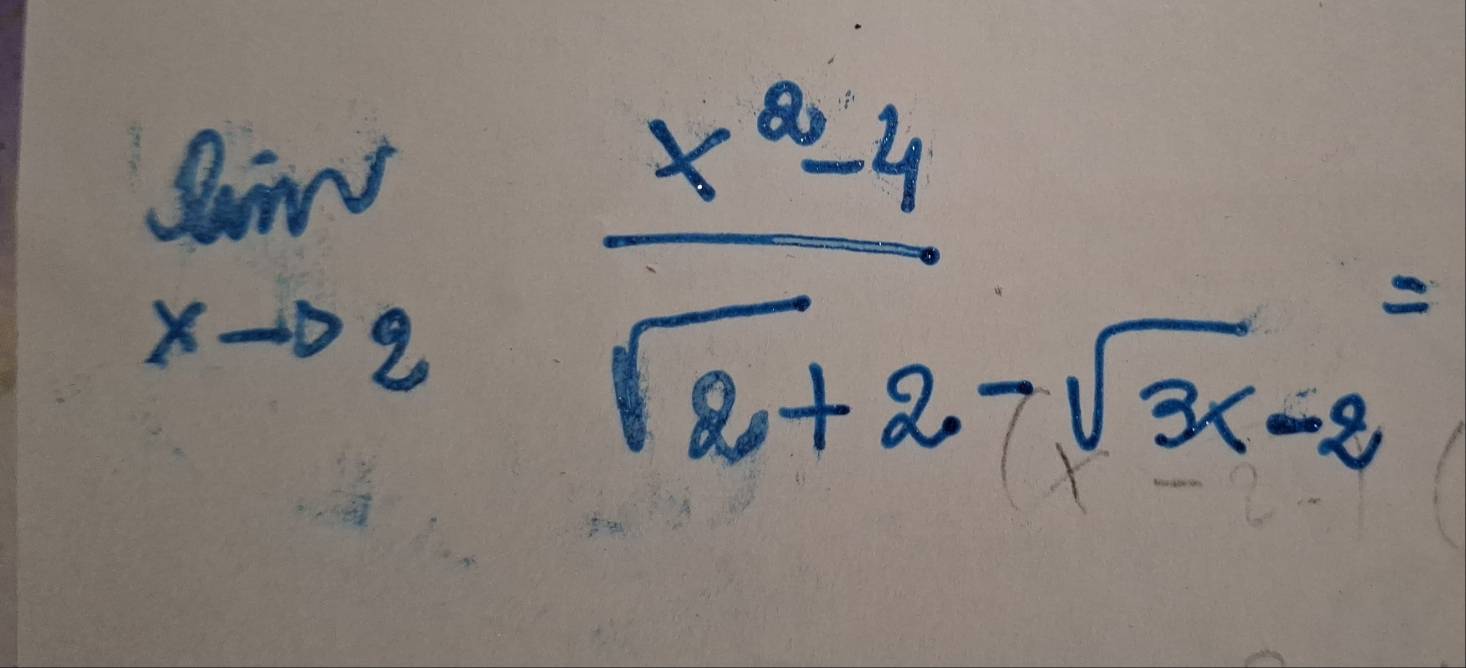 lim x→2 (x² - 4) / (√2 + 2 - √3x - 2) =
(x - 2 -